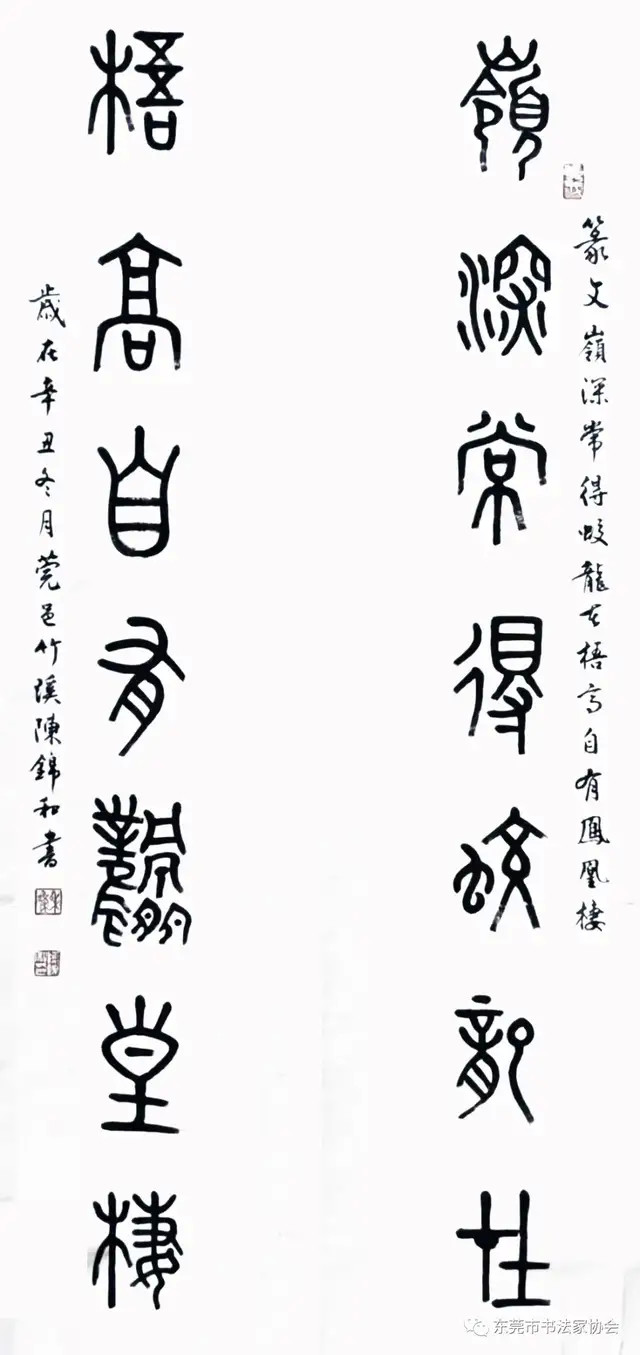 篆文嶺深常得蛟龍在梧高自有鳳凰棲
嶺深常得蛟龍在
梧高自有鳳皇棲
歲在辛丑冬月莞邑竹溪陳錦和書
东莞市书法家协会